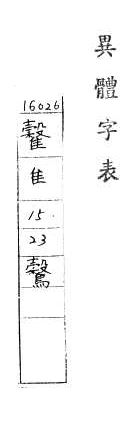 異體字表
16026
隹
15
23